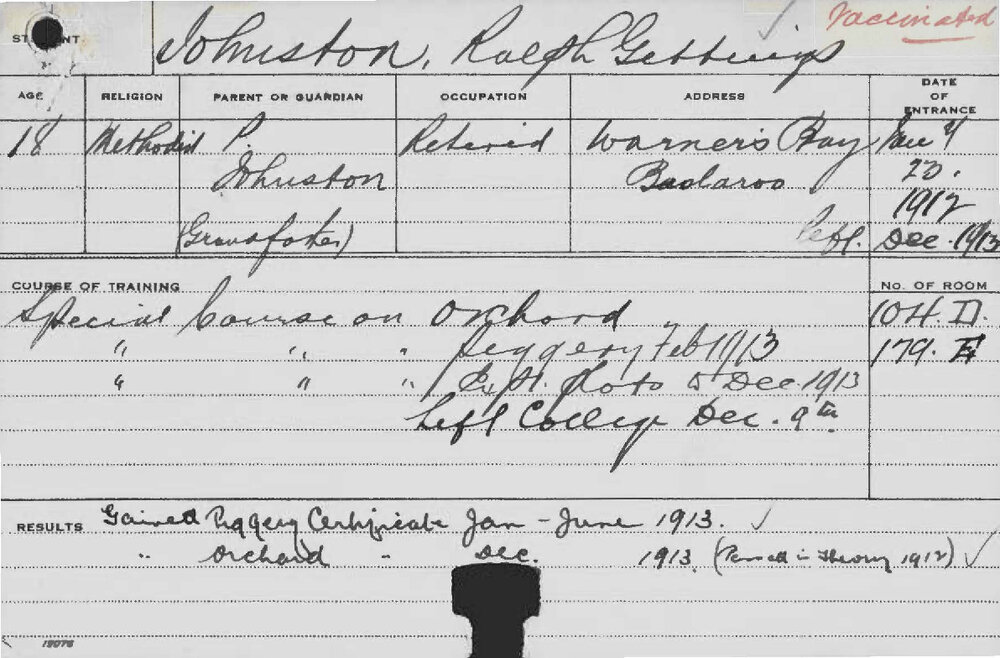 Vaccinated
STUDENT Johnston, Ralph Gettings
AGE RELIGION PARENT OR GUARDIAN OCCUPATION ADDRESS DATE OF ENTRANCE
18 Methodist P. Retired Warner's Bay
Johnston 23.
1912
(Grandfather) Left. Dec. 1913
COURSE OF TRAINING No. OF ROOM
Special Course on Orchard 104. D.
" " " Piggery Feb 1913 179. E
" " " Ex. St. Plots to Dec. 1913
Left College Dec. 9th
RESULTS Gained Piggery Certificate Jan - June 1913. ✓
" Orchard " Dec. 1913. (Passed in Theory 1912) ✓
19076